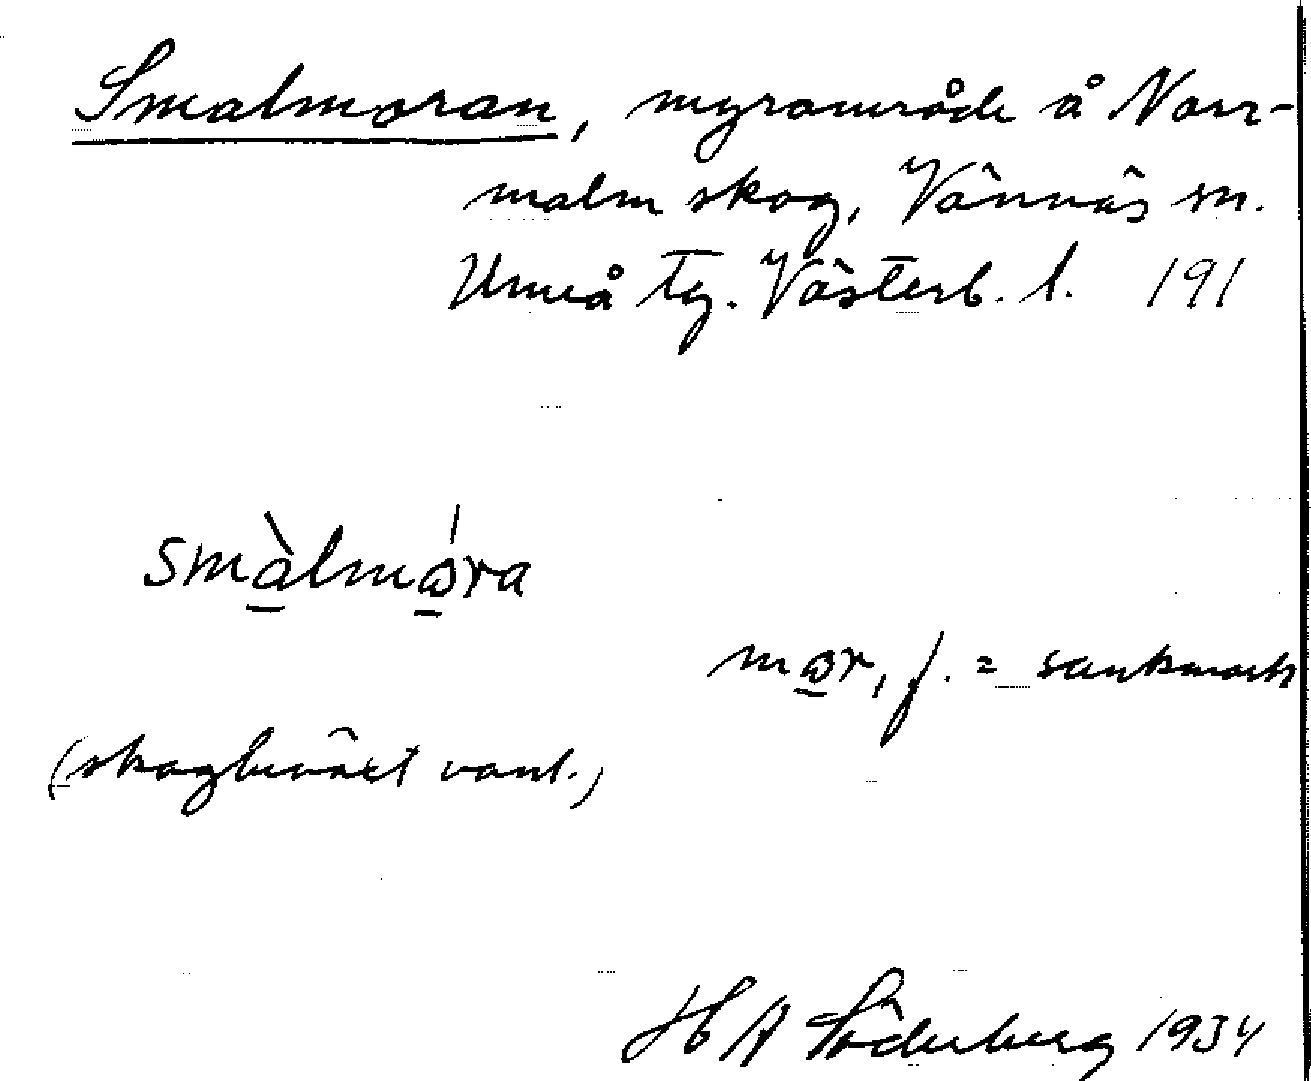 Smalmoran, myrområde å Norr-
malm skog, Vännäs sn.
Umeå tg. Västerb. l. 191
smàlmɷ́ra
mɷr, f. = sankmark
(skogbeväxt vanl.)
H A Söderberg 1934